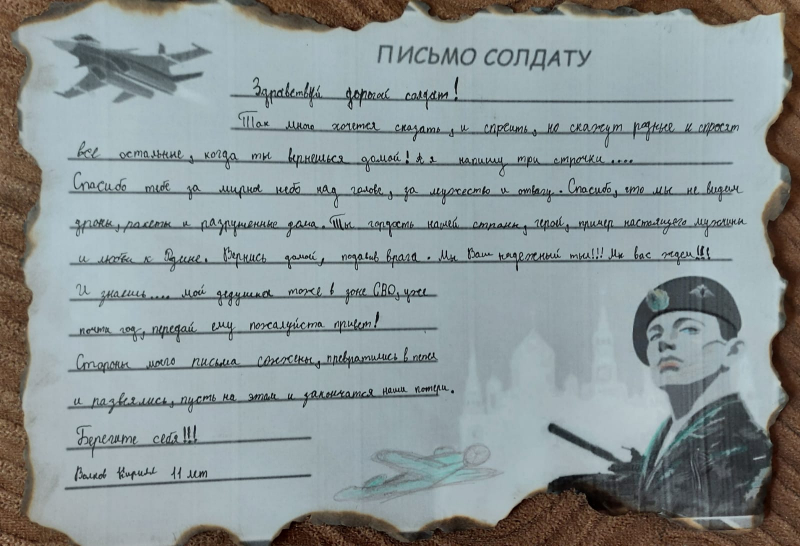 ПИСЬМО СОЛДАТУ
Здравствуй дорогой солдат!
Так много хочется сказать, и спросить, но скажут родные и спросят
все остальные, когда ты вернешься домой! А я напишу три строчки....
Спасибо тебе за мирное небо над голове, за мужество и отвагу. Спасибо, что мы не видим
дроны, ракеты и разрушенные дома. Ты гордость нашей страны, герой, пример настоящего мужчины
и любви к Родине. Вернись домой, подавив врага. Мы Ваш надежный тыл!!! Мы вас ждем!!!
И знаешь.... мой дедушка тоже в зоне СВО, уже
почти год, передай ему пожалуйста привет!
Стороны моего письма сожжены, превратились в пепел
и развеялись, пусть на этом и закончатся наши потери.
Берегите себя!!!
Волков Кирилл 11 лет